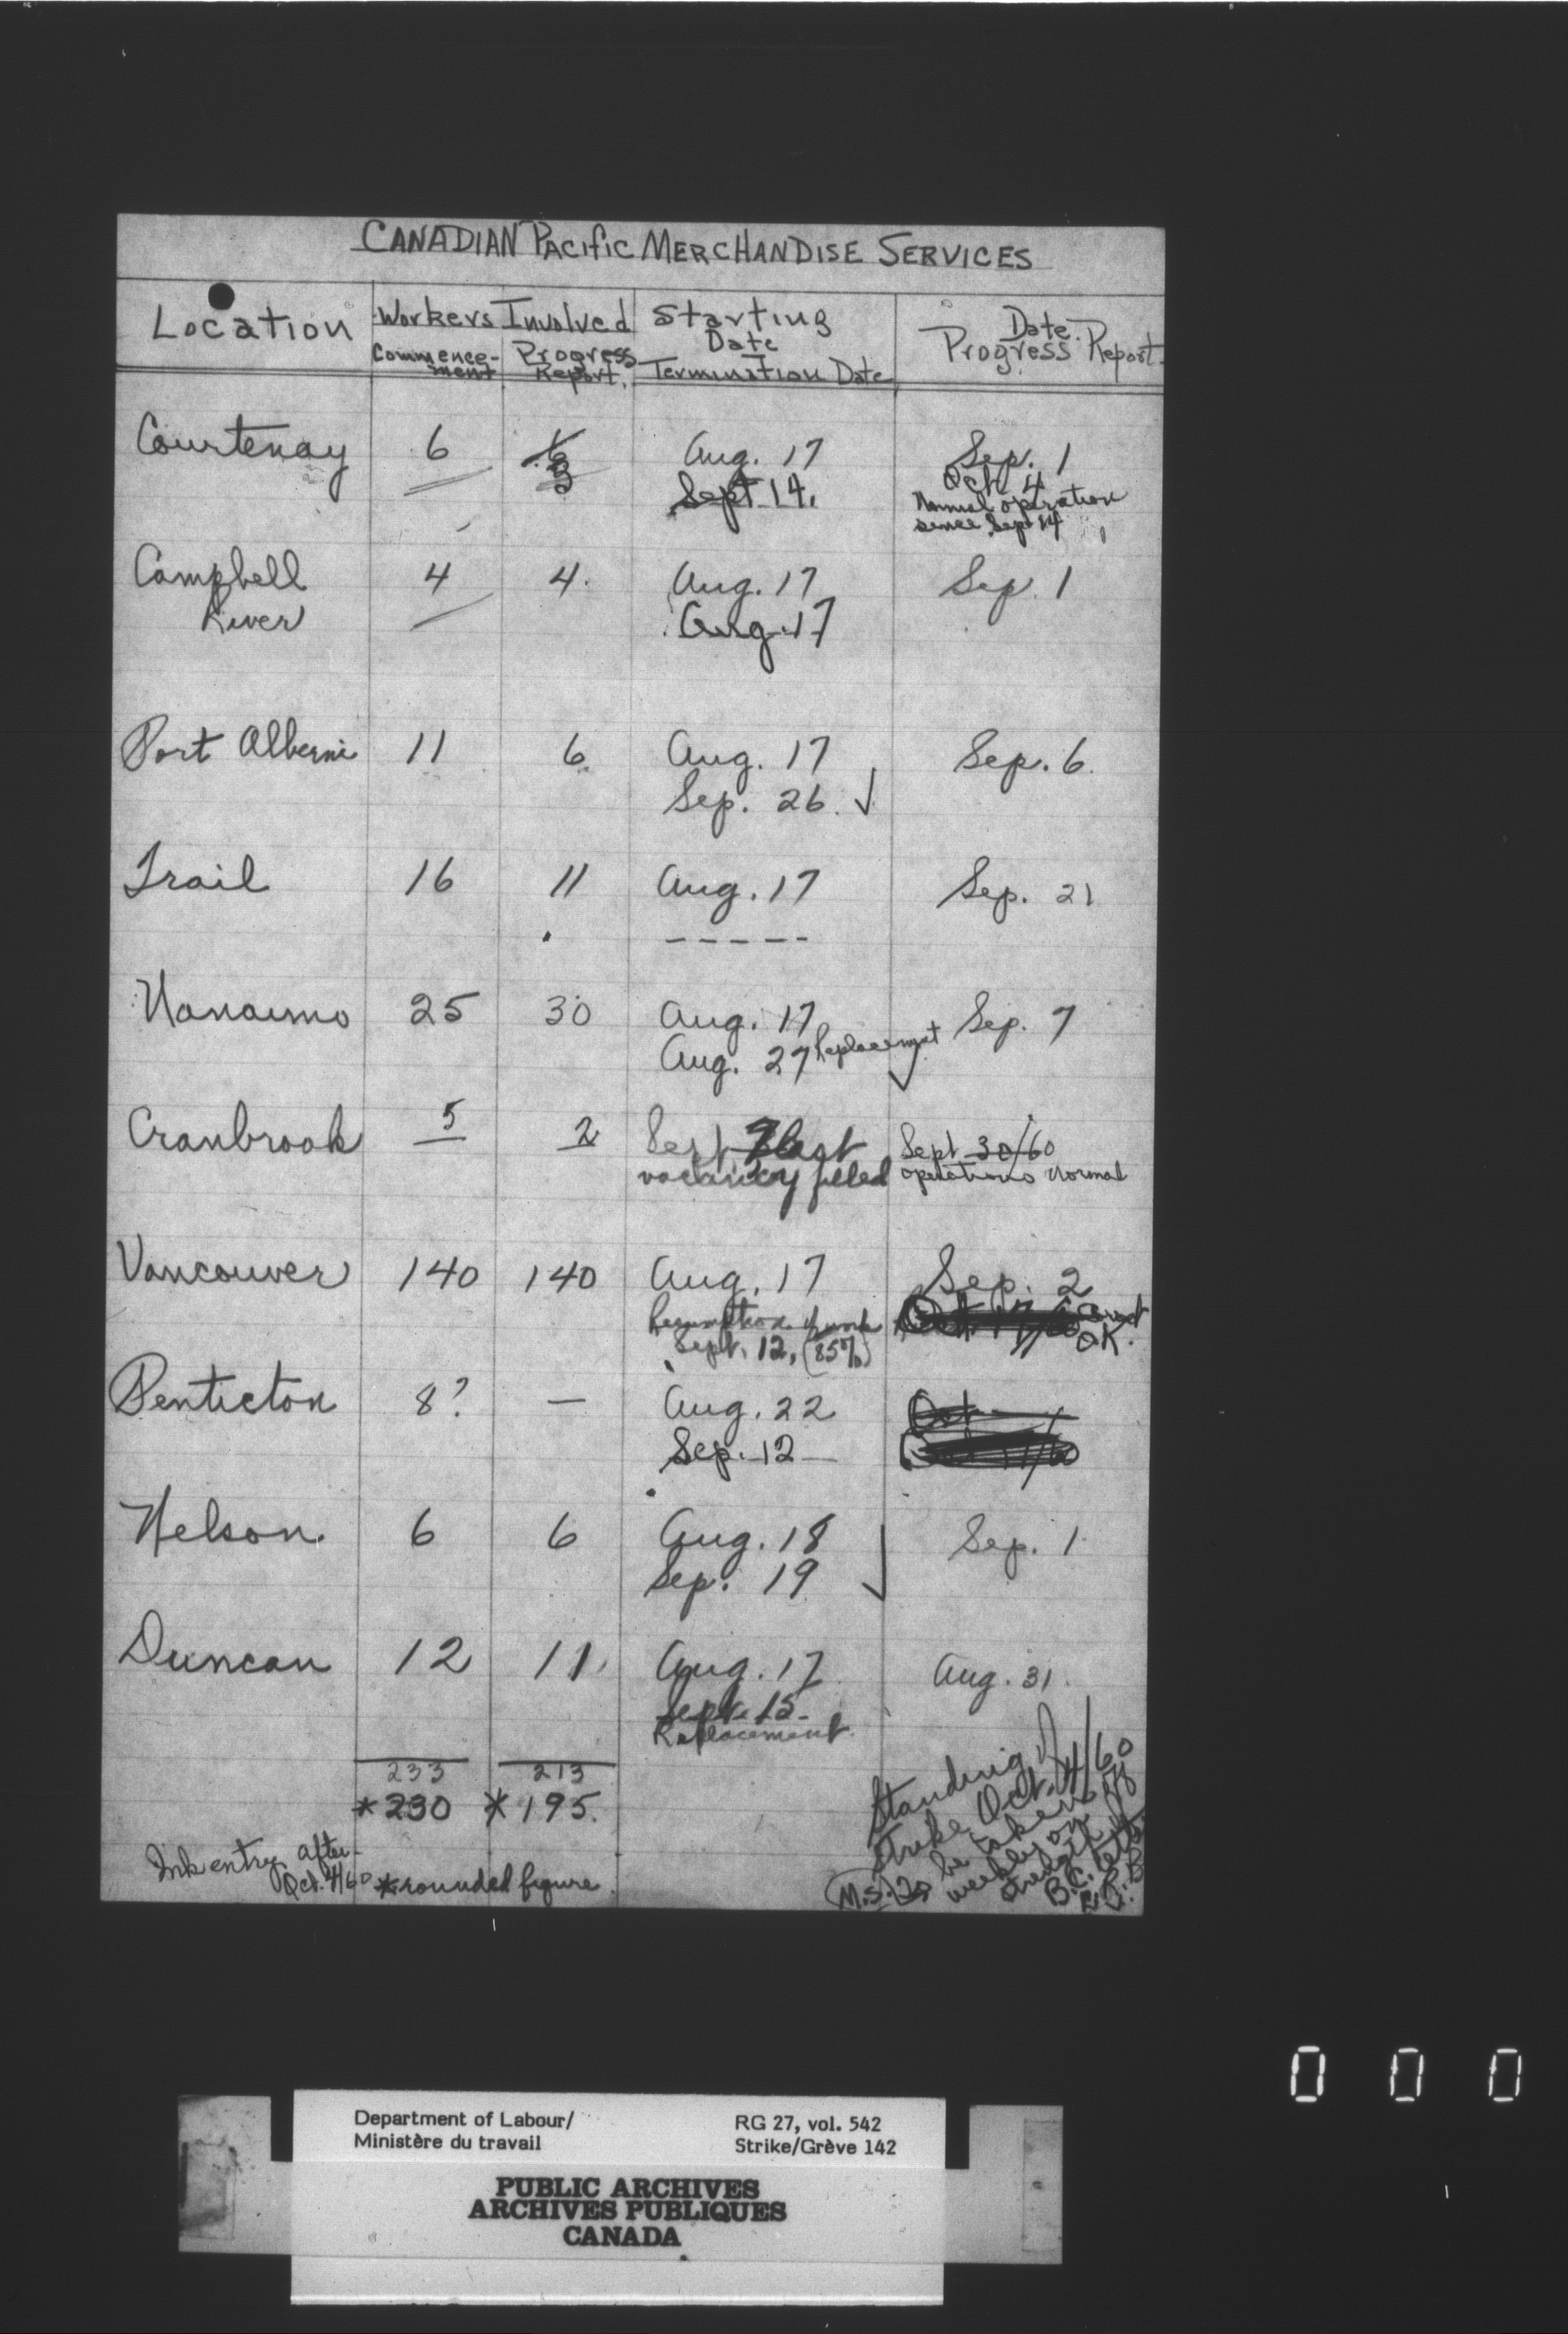 CANADIAN PACIFIC MERCHANDISE SERVICES
Location Workers Involved Starting Date Date Progress Report
Commencement Progress Report. Termination Date
Courtenay 6 Aug. 17 Sep. 1
Sept 14. Oct. 4
Normal operation
since Sept 14
Campbell 4 4. Aug. 17 Sep. 1
River Aug. 17
Port Alberni 11 6 Aug. 17 Sep. 6.
Sep. 26.
Trail 16 11 Aug. 17 Sep. 21
-----
Nanaimo 25 30 Aug. 17 Sep. 7
Aug. 27 Replacement
Cranbrook 5 2 Sept last Sept 30/60
vacancy filled operations normal
Vancouver 140 140 Aug. 17 Sep. 2
Resumption of work OK.
Sept. 12, (85%)
Penticton 8? — Aug. 22 Oct
Sep. 12
Nelson 6 6 Aug. 18 Sep. 1
Sep. 19
Duncan 12 11 Aug. 17 Aug. 31.
Sept. 15
Replacement.
233 213
*230 *195.
Ink entry after
Oct. 4/60 *rounded figure.
Standing
strike Oct. 4/60
to be taken off
weekly on
B.C.
M.S.
0 0 0
Department of Labour/ RG 27, vol. 542
Ministère du travail Strike/Grève 142
PUBLIC ARCHIVES
ARCHIVES PUBLIQUES
CANADA